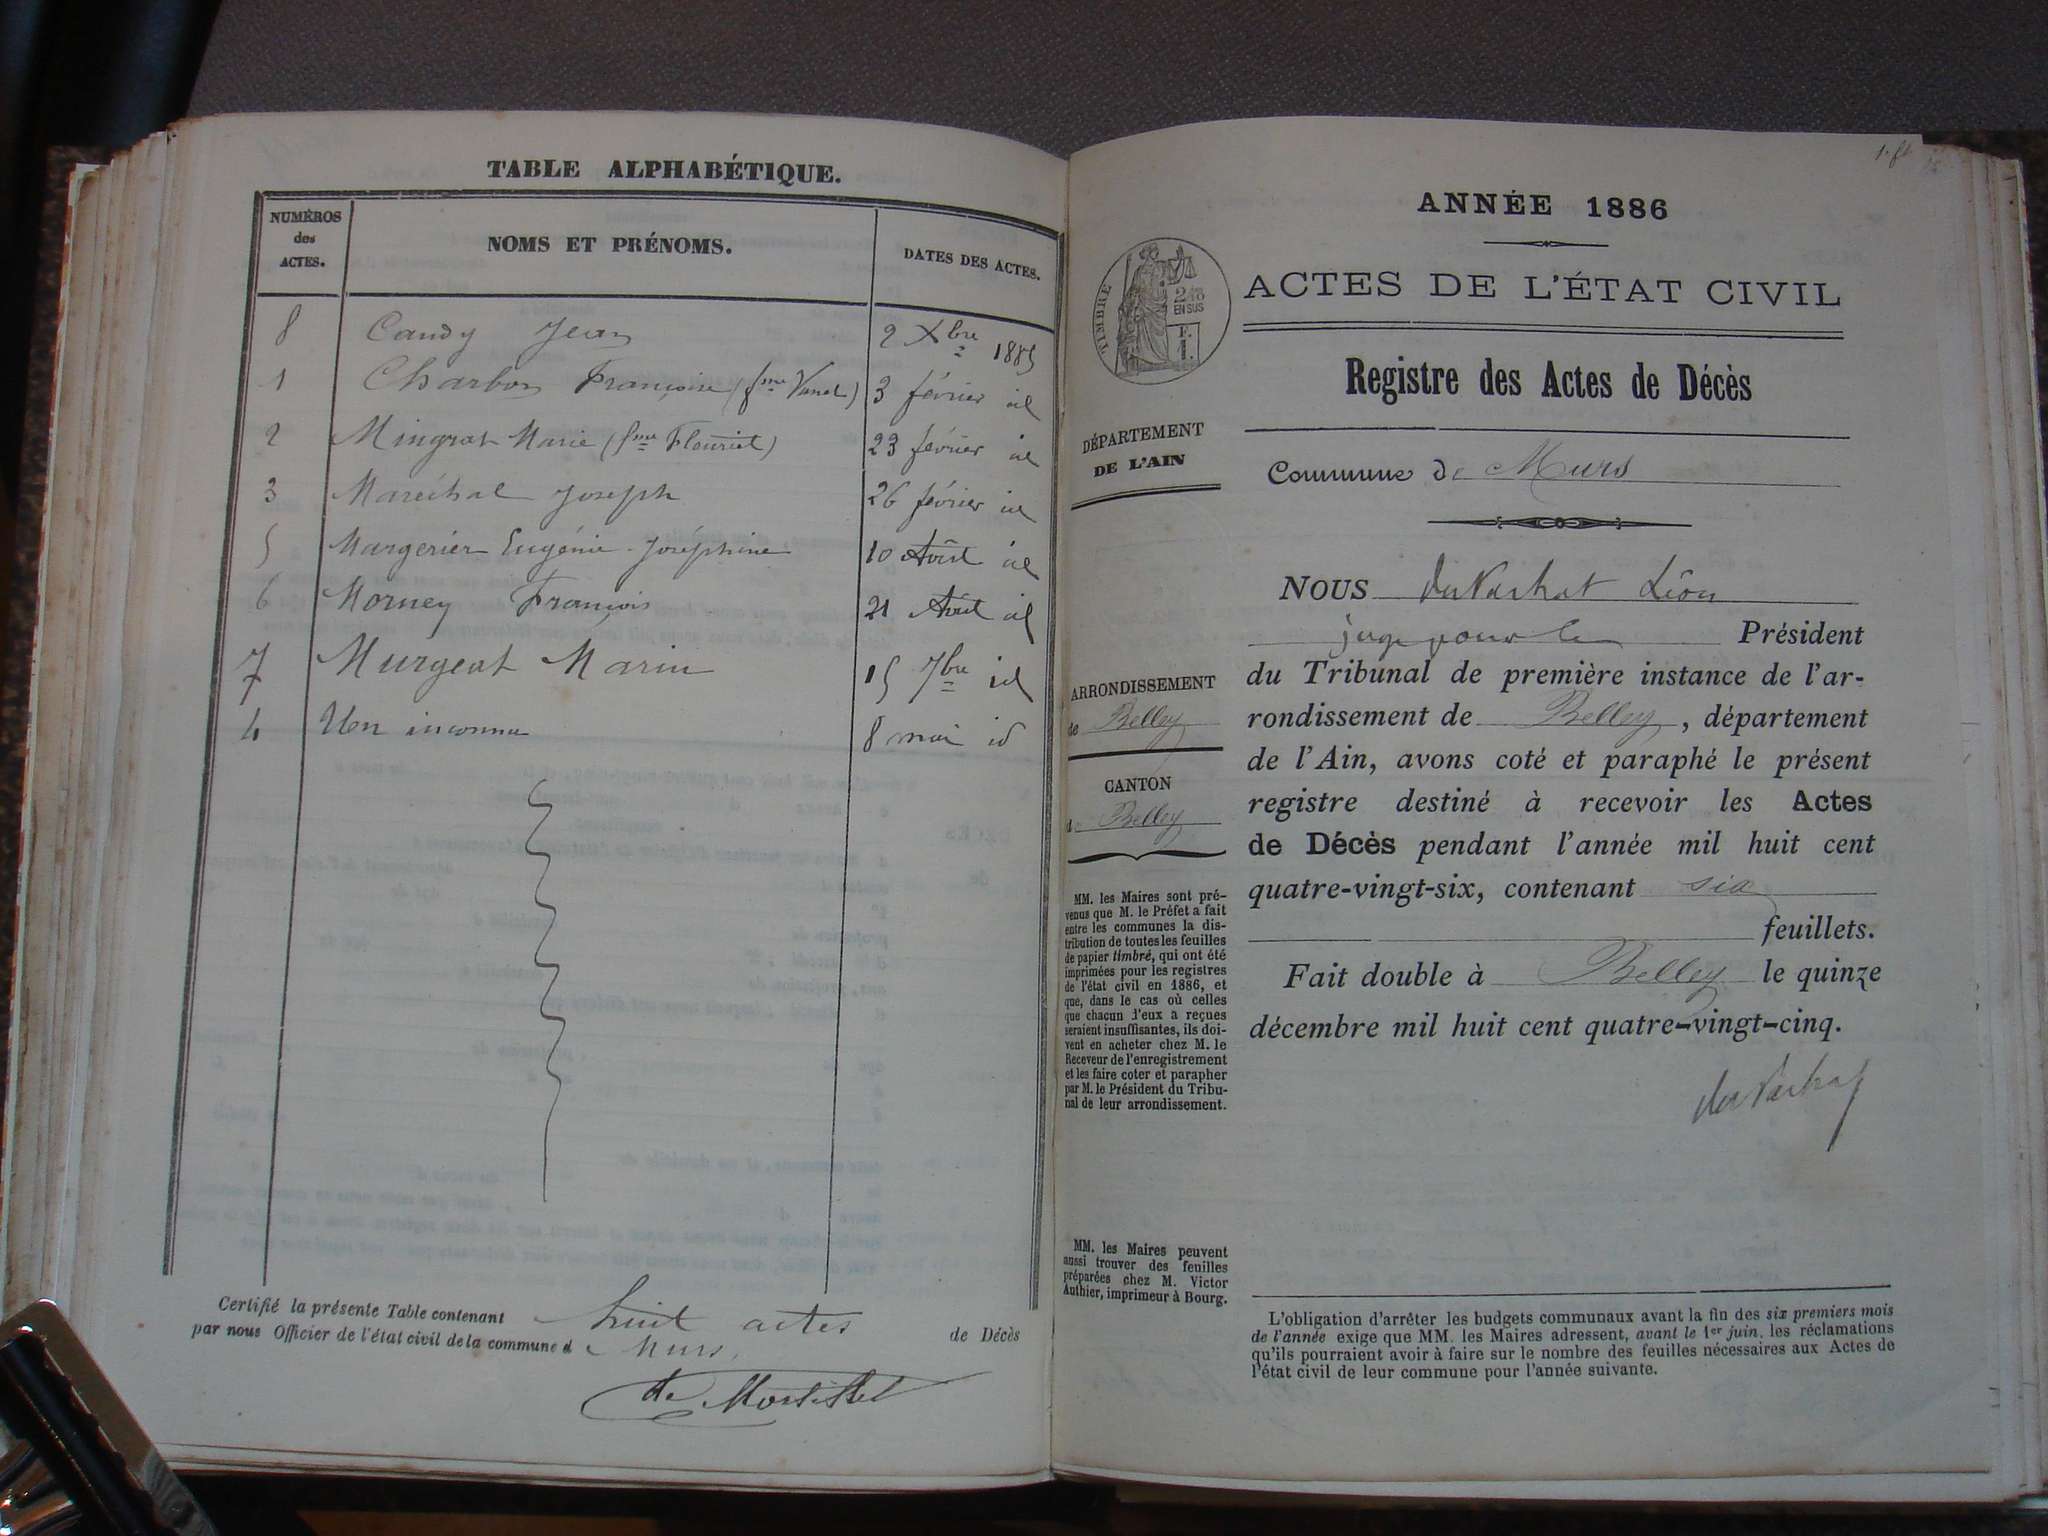 TABLE ALPHABÉTIQUE.
NUMÉROS
des
ACTES.
NOMS ET PRÉNOMS.
DATES DES ACTES.
8 Candy Jean 2 Xbre 1885
1 Charbon Françoise (fme Vanel) 3 février id
2 Mingrat Marie (fme Fleuriet) 23 février id
3 Maréchal Joseph 26 février id
5 Margerier Eugénie Joséphine 10 Août id
6 Morney François 21 Août id
7 Murgeat Marin 15 7bre id
4 Un inconnu 8 mai id
Certifié la présente Table contenant huit actes de Décès
par nous Officier de l'état civil de la commune d Murs.
1. ft
ANNÉE 1886
ACTES DE L'ÉTAT CIVIL
TIMBRE
2/10
EN SUS
F.
1.
Registre des Actes de Décès
DÉPARTEMENT
DE L'AIN
Commune de Murs
NOUS Léon
juge pour le Président
du Tribunal de première instance de l'ar-
rondissement de Belley, département
de l'Ain, avons coté et paraphé le présent
registre destiné à recevoir les Actes
de Décès pendant l'année mil huit cent
quatre-vingt-six, contenant six
feuillets.
Fait double à Belley le quinze
décembre mil huit cent quatre-vingt-cinq.
ARRONDISSEMENT
de Belley
CANTON
de Belley
MM. les Maires sont pré-
venus que M. le Préfet a fait
entre les communes la dis-
tribution de toutes les feuilles
de papier timbré, qui ont été
imprimées pour les registres
de l'état civil en 1886, et
que, dans le cas où celles
que chacun d'eux a reçues
seraient insuffisantes, ils doi-
vent en acheter chez M. le
Receveur de l'enregistrement
et les faire coter et parapher
par M. le Président du Tribu-
nal de leur arrondissement.
MM. les Maires peuvent
aussi trouver des feuilles
préparées chez M. Victor
Authier, imprimeur à Bourg.
L'obligation d'arrêter les budgets communaux avant la fin des six premiers mois
de l'année exige que MM. les Maires adressent, avant le 1er juin, les réclamations
qu'ils pourraient avoir à faire sur le nombre des feuilles nécessaires aux Actes de
l'état civil de leur commune pour l'année suivante.